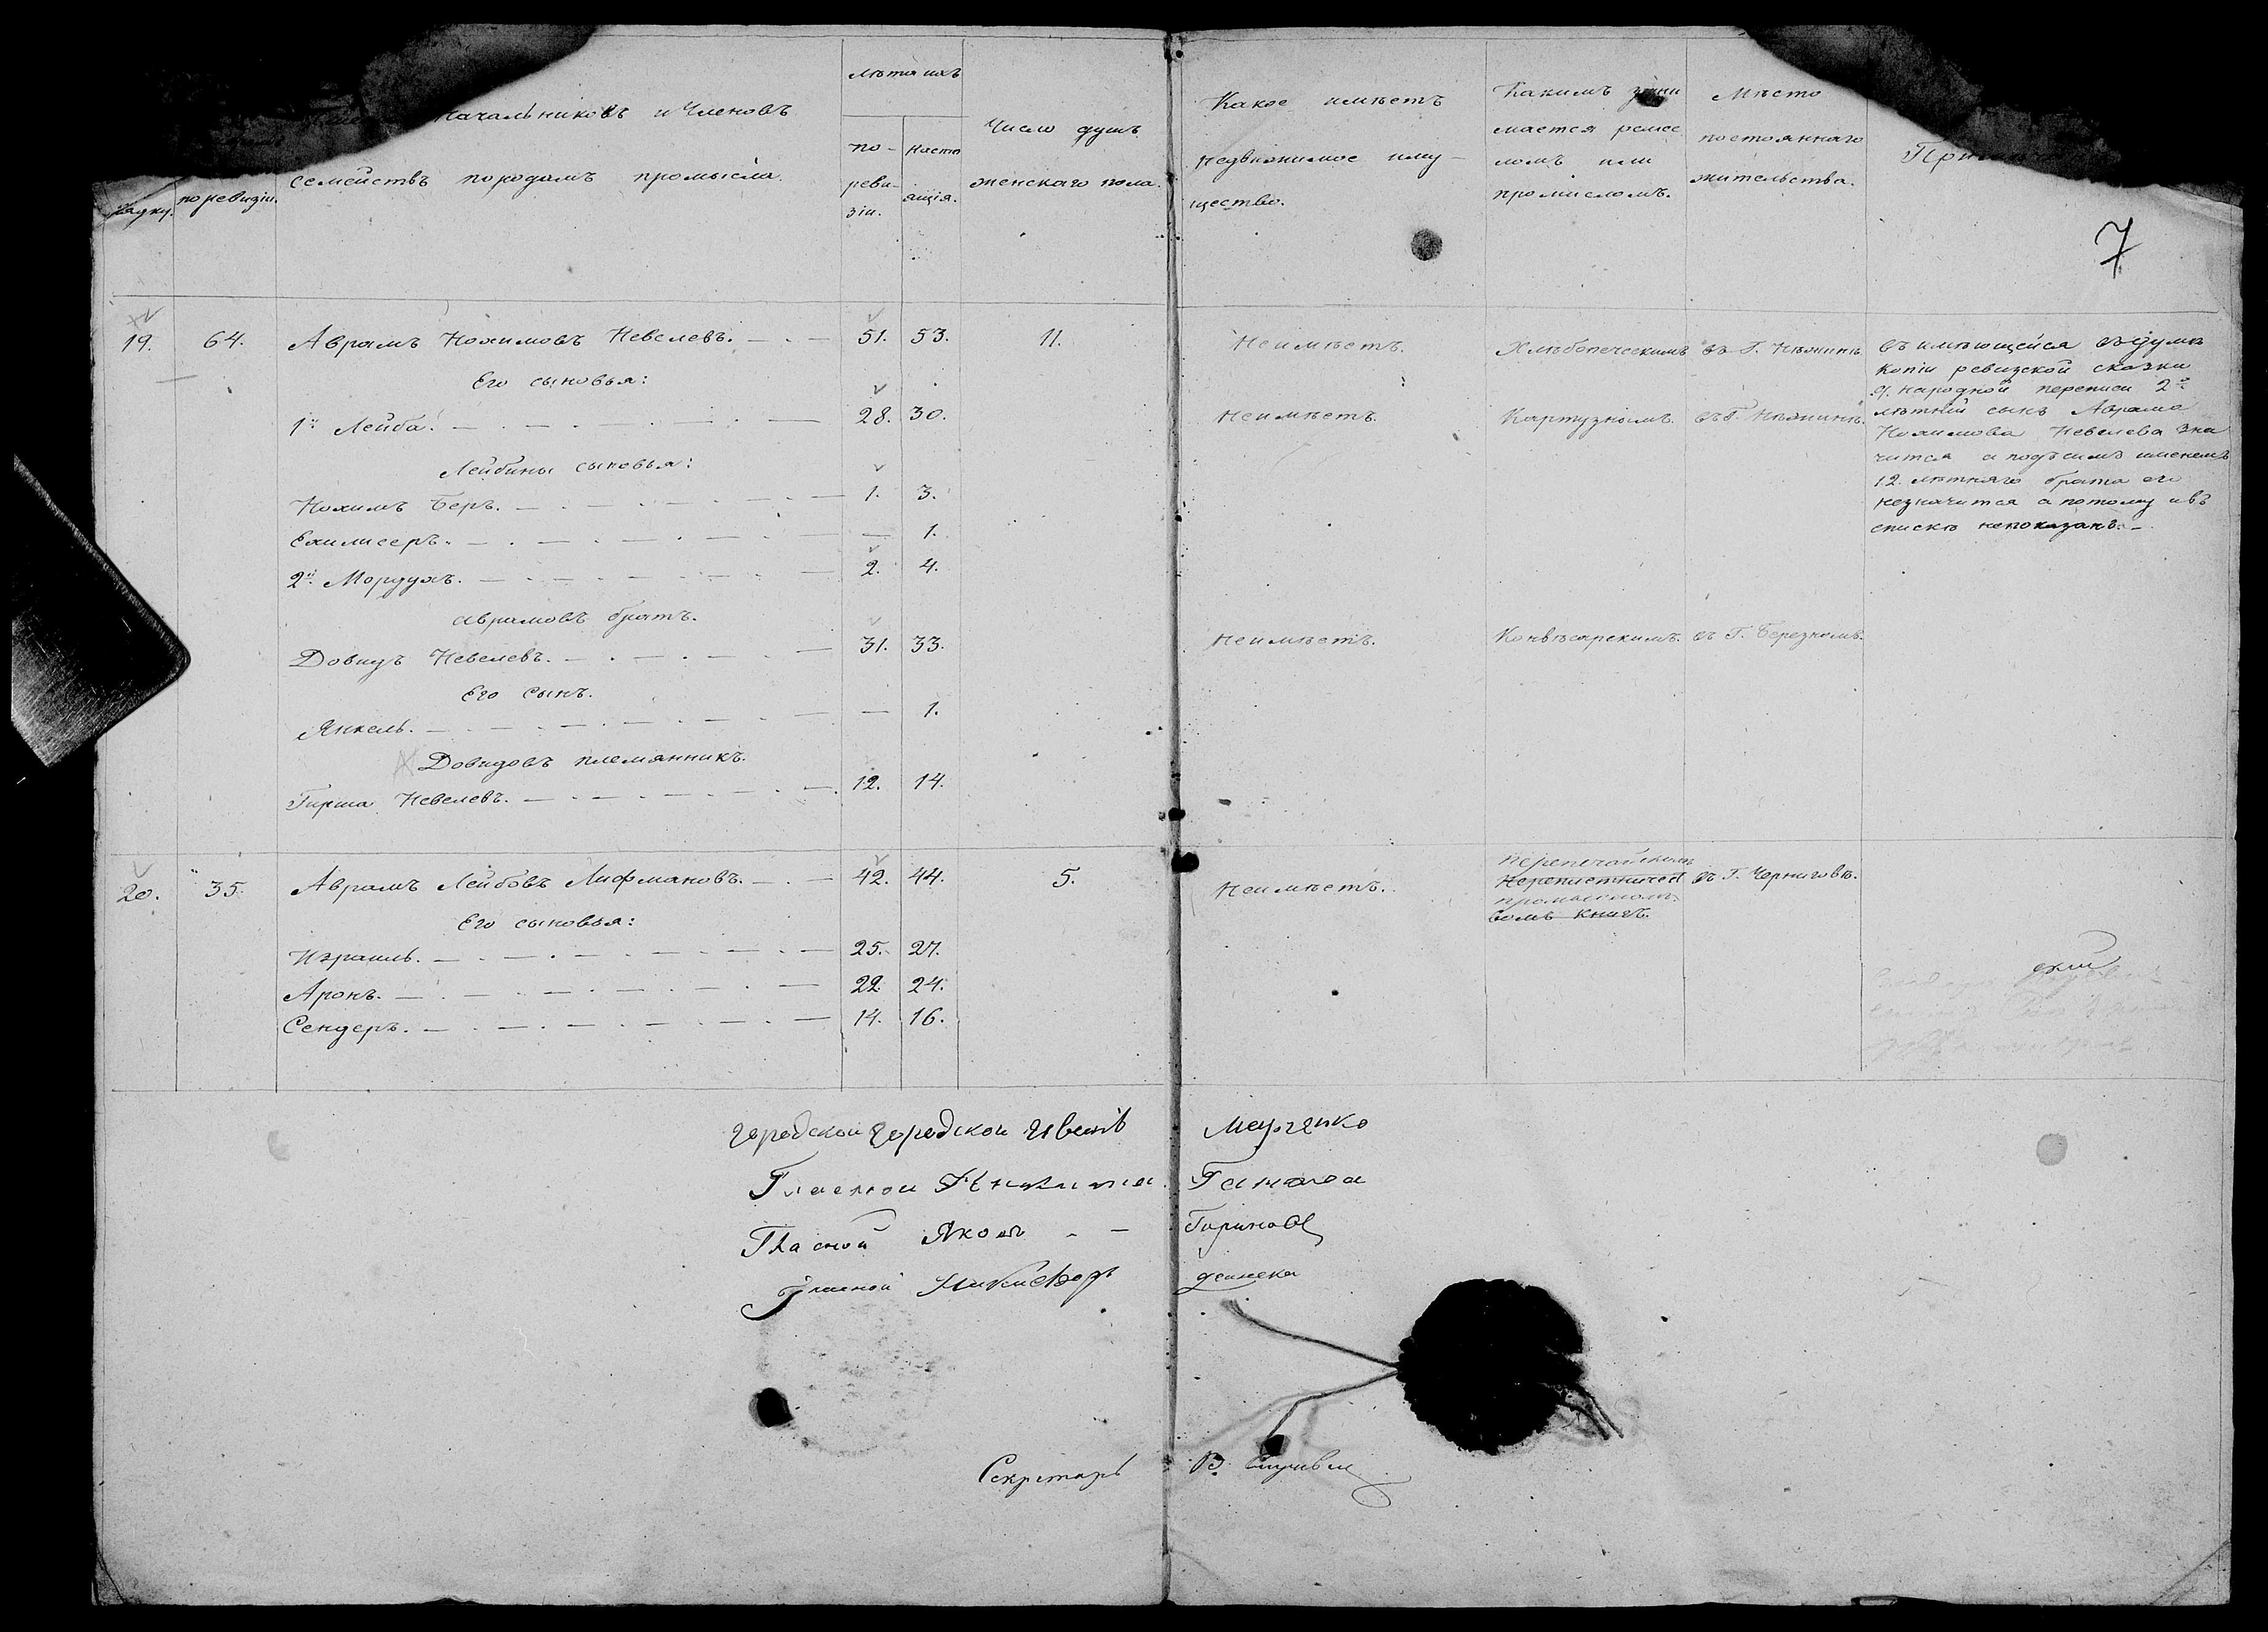 7
Начальниковъ и Членовъ
семействъ породамъ промысла.
ряду.
по ревизіи.
лѣта ихъ
по-
реви-
зіи.
насто
ящія.
Число душъ
женскаго пола.
Какое имѣетъ
недвижимое иму-
щество.
Какимъ зани
мается ремес
ломъ или
промисломъ.
Мѣсто
постояннаго
жительства.
19. 64. Аврамъ Нохимовъ Невелевъ. 51. 53. 11. Неимѣетъ. Хлѣбопеческимъ въ Г. Нѣжинѣ.
Его сыновья:
1й Лейба. 28. 30. Неимѣетъ. Картузнымъ. въ Г. Нѣжинѣ.
Лейбины сыновья:
Нохимъ Беръ. 1. 3.
Ехилисеръ. — 1.
2й Мордухъ. 2. 4.
Аврамовъ братъ.
Довидъ Невелевъ. 31. 33. Неимѣетъ. въ Г. Березномъ.
Его сынъ.
Янкель. — 1.
Довидовъ племянникъ.
Гирша Невелевъ. 12. 14.
въ имѣющейся въ думѣ
копіи ревизской сказки
9. народной переписи 2хъ
лѣтній сынъ Аврама
Нохимова Невелева зна
чится а подъ симъ именемъ
12 лѣтняго брата его
незначится а потому и въ
спискѣ непоказанъ.
20. 35. Аврамъ Лейбовъ Лифмановъ. 42. 44. 5. Неимѣетъ. въ Г. Черниговѣ.
промысломъ
вомъ книгъ.
Его сыновья:
Израиль. 25. 27.
Аронъ. 22. 24.
Сендеръ. 14. 16.
городской городской Марченко
Гласной Никита
Гласной Яковъ
Гласной Никифоръ Дейнека
Секретарь В.